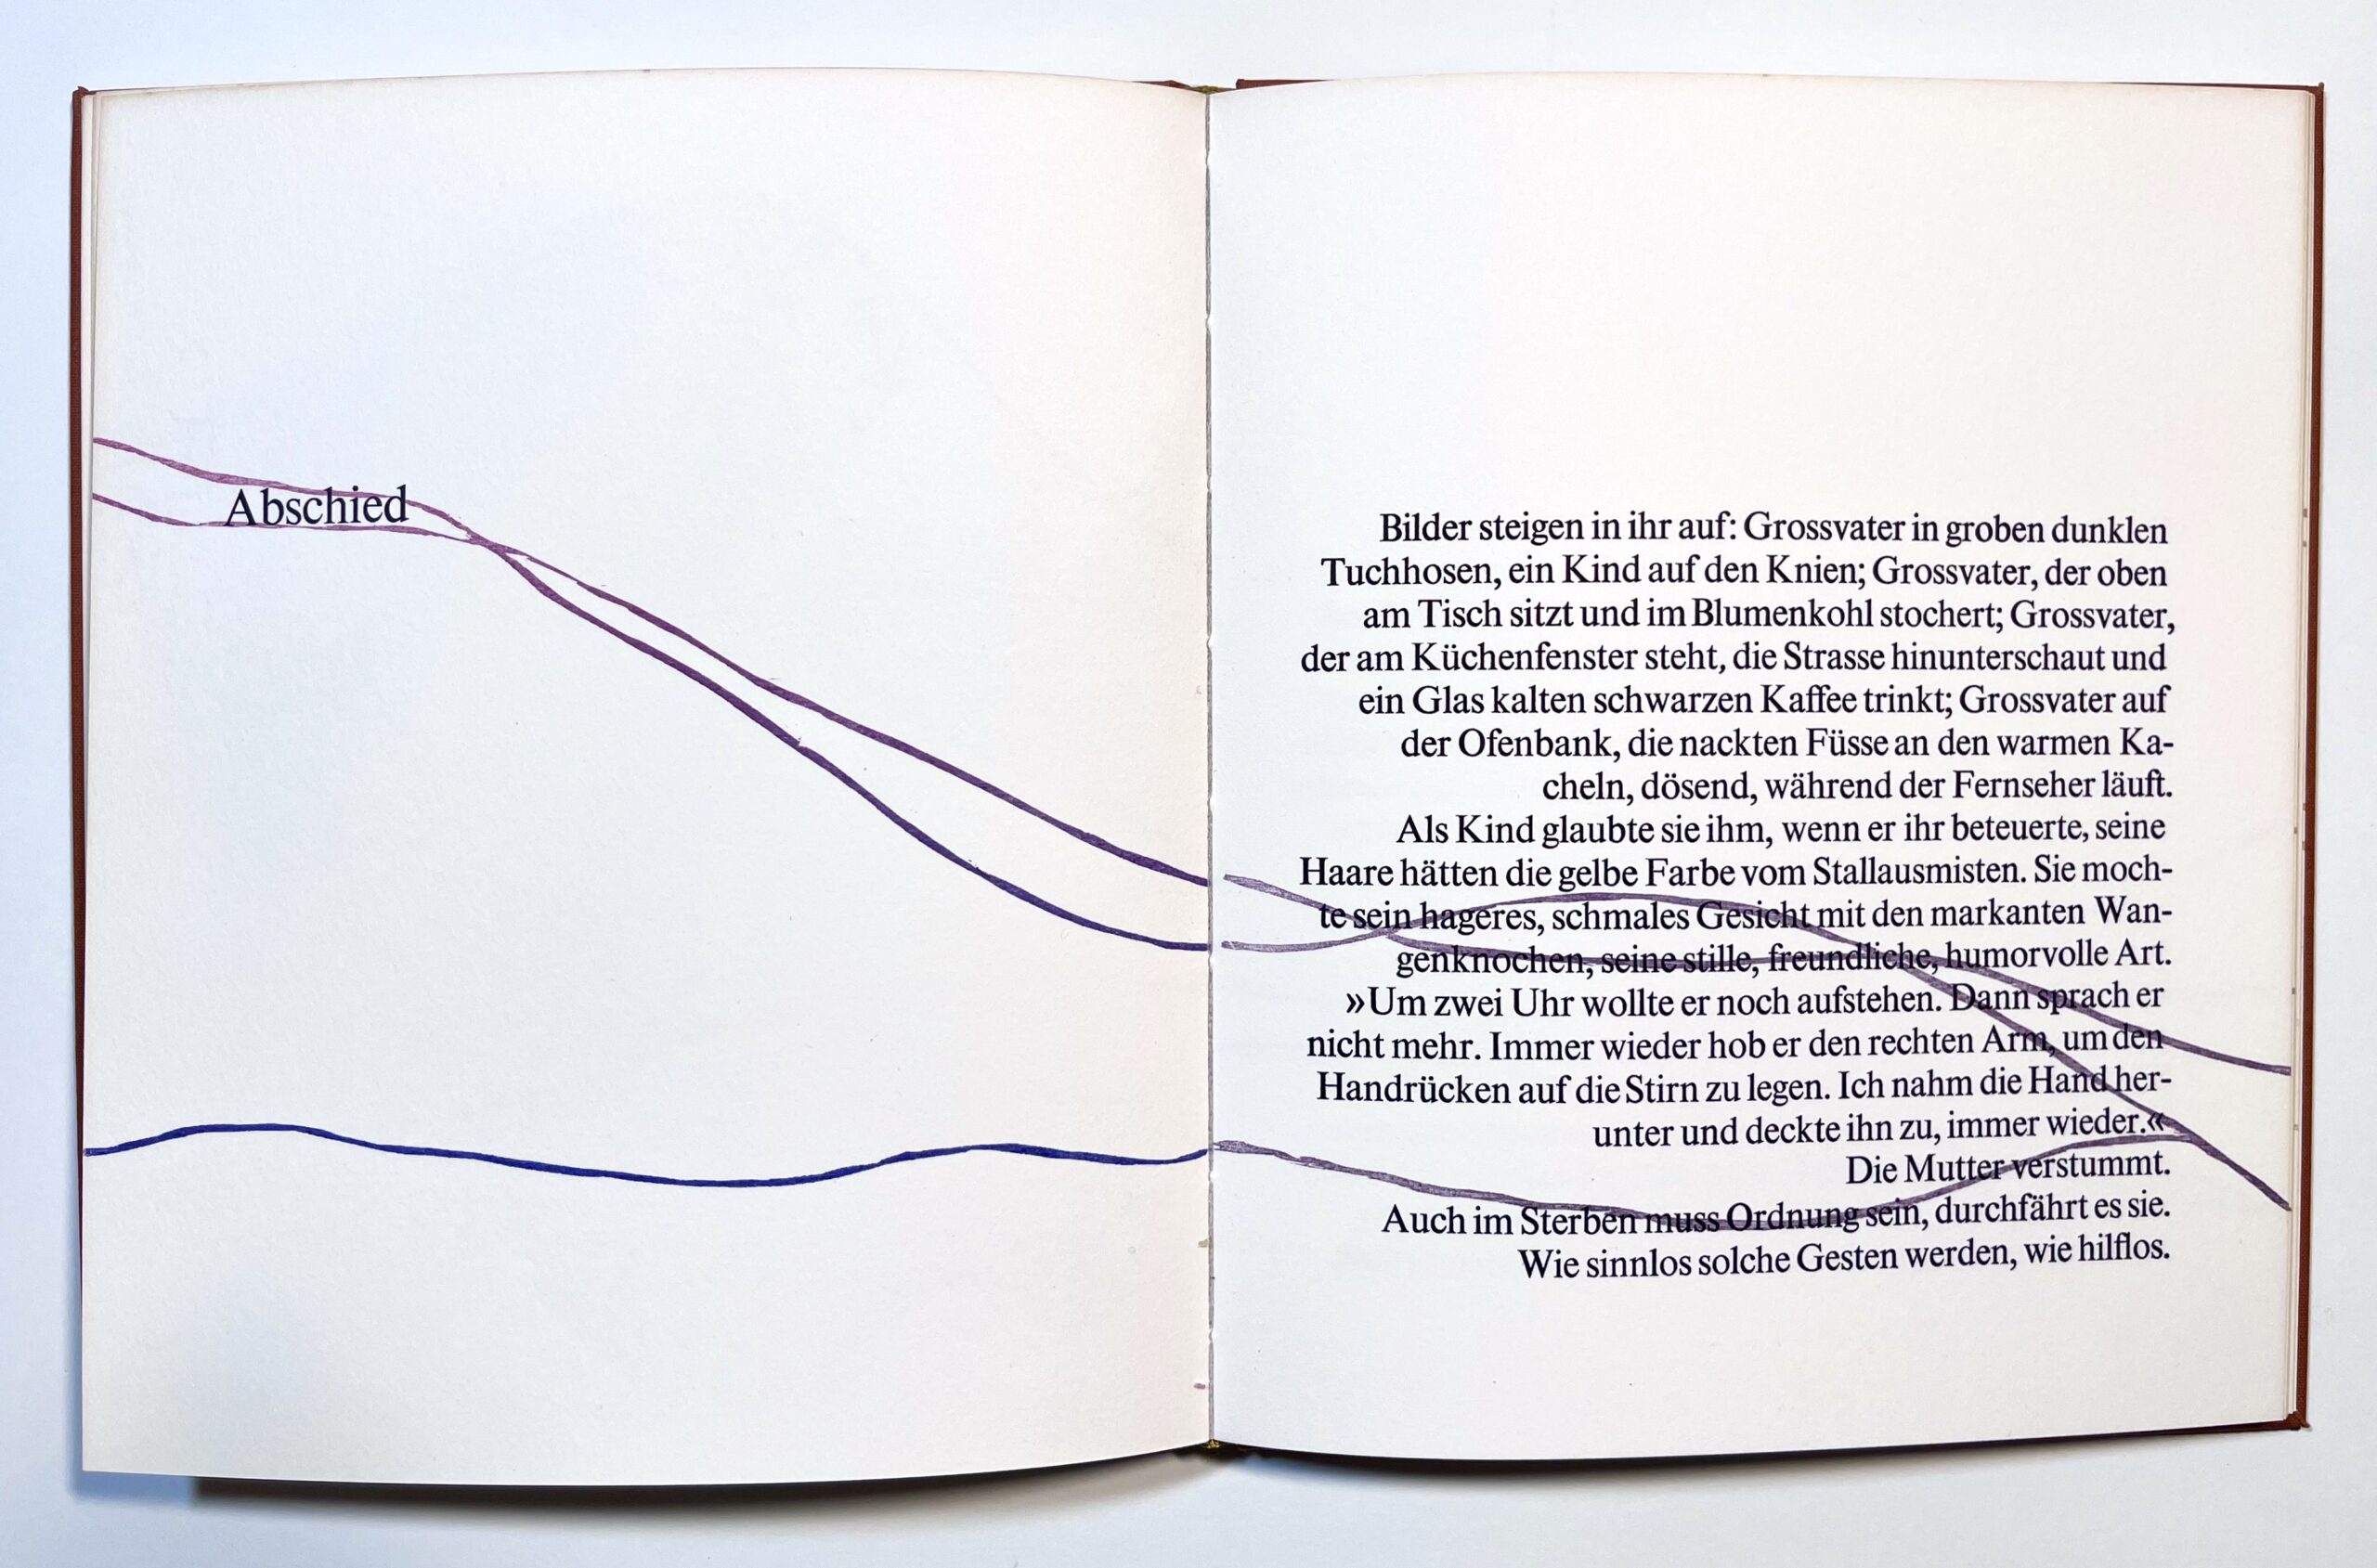 Abschied
Bilder steigen in ihr auf: Grossvater in groben dunklen
Tuchhosen, ein Kind auf den Knien; Grossvater, der oben
am Tisch sitzt und im Blumenkohl stochert; Grossvater,
der am Küchenfenster steht, die Strasse hinunterschaut und
ein Glas kalten schwarzen Kaffee trinkt; Grossvater auf
der Ofenbank, die nackten Füsse an den warmen Ka-
cheln, dösend, während der Fernseher läuft.
Als Kind glaubte sie ihm, wenn er ihr beteuerte, seine
Haare hätten die gelbe Farbe vom Stallausmisten. Sie moch-
te sein hageres, schmales Gesicht mit den markanten Wan-
genknochen, seine stille, freundliche, humorvolle Art.
»Um zwei Uhr wollte er noch aufstehen. Dann sprach er
nicht mehr. Immer wieder hob er den rechten Arm, um den
Handrücken auf die Stirn zu legen. Ich nahm die Hand her-
unter und deckte ihn zu, immer wieder.«
Die Mutter verstummt.
Auch im Sterben muss Ordnung sein, durchfährt es sie.
Wie sinnlos solche Gesten werden, wie hilflos.